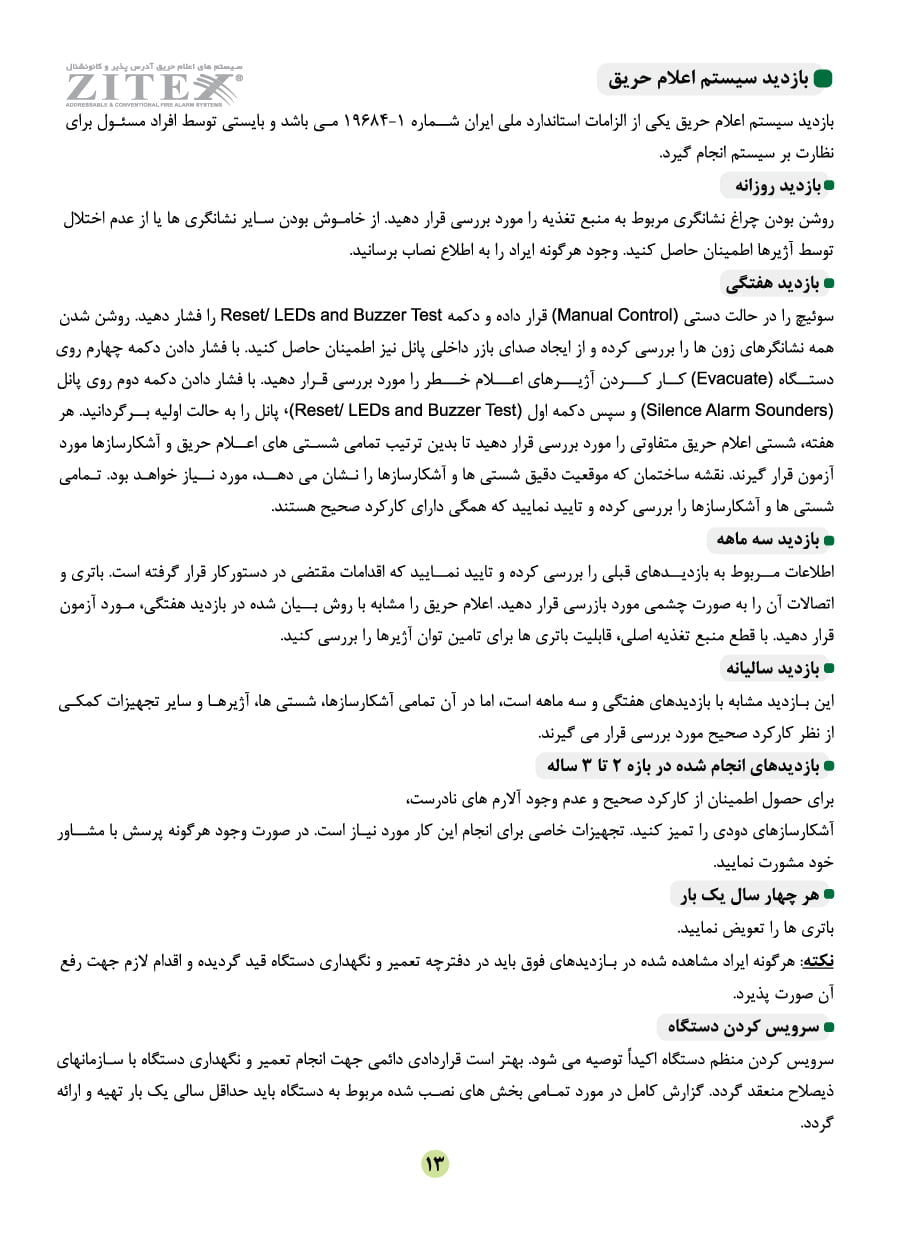 سیستم های اعلام حریق آدرس پذیر و کانونشنال
ZITEX®
ADDRESSABLE & CONVENTIONAL FIRE ALARM SYSTEMS
بازدید سیستم اعلام حریق
بازدید سیستم اعلام حریق یکی از الزامات استاندارد ملی ایران شـــماره ۱-۱۹۶۸۴ مـی باشد و بایستی توسط افراد مسئـول برای
نظارت بر سیستم انجام گیرد.
بازدید روزانه
روشن بودن چراغ نشانگری مربوط به منبع تغذیه را مورد بررسی قرار دهید. از خامـوش بودن سـایر نشانگری ها یا از عدم اختلال
توسط آژیرها اطمینان حاصل کنید. وجود هرگونه ایراد را به اطلاع نصاب برسانید.
بازدید هفتگی
سوئیچ را در حالت دستی (Manual Control) قرار داده و دکمه Reset/ LEDs and Buzzer Test را فشار دهید. روشن شدن
همه نشانگرهای زون ها را بررسی کرده و از ایجاد صدای بازر داخلی پانل نیز اطمینان حاصل کنید. با فشار دادن دکمه چهارم روی
دستـگاه (Evacuate) کـار کـــردن آژیـــرهای اعــلام خــطر را مورد بررسی قـرار دهید. با فشار دادن دکمه دوم روی پانل
(Silence Alarm Sounders) و سپس دکمه اول (Reset/ LEDs and Buzzer Test)، پانل را به حالت اولیه بــرگردانید. هر
هفته، شستی اعلام حریق متفاوتی را مورد بررسی قرار دهید تا بدین ترتیب تمامی شستـی های اعـــلام حریق و آشکارسازها مورد
آزمون قرار گیرند. نقشه ساختمان که موقعیت دقیق شستی ها و آشکارسازها را نـشان می دهــد، مورد نـــیاز خواهـد بود. تـمامی
شستی ها و آشکارسازها را بررسی کرده و تایید نمایید که همگی دارای کارکرد صحیح هستند.
بازدید سه ماهه
اطلاعات مـــربوط به بازدیــدهای قبلی را بررسی کرده و تایید نمــایید که اقدامات مقتضی در دستورکار قرار گرفته است. باتری و
اتصالات آن را به صورت چشمی مورد بازرسی قرار دهید. اعلام حریق را مشابه با روش بــیان شده در بازدید هفتگی، مـورد آزمون
قرار دهید. با قطع منبع تغذیه اصلی، قابلیت باتری ها برای تامین توان آژیرها را بررسی کنید.
بازدید سالیانه
این بـازدید مشابه با بازدیدهای هفتگی و سه ماهه است، اما در آن تمامی آشکارسازها، شستی ها، آژیرهـا و سایر تجهیزات کمکـی
از نظر کارکرد صحیح مورد بررسی قرار می گیرند.
بازدیدهای انجام شده در بازه ۲ تا ۳ ساله
برای حصول اطمینان از کارکرد صحیح و عدم وجود آلارم های نادرست،
آشکارسازهای دودی را تمیز کنید. تجهیزات خاصی برای انجام این کار مورد نیـاز است. در صورت وجود هرگونه پرسش با مشــاور
خود مشورت نمایید.
هر چهار سال یک بار
باتری ها را تعویض نمایید.
نکته: هرگونه ایراد مشاهده شده در بـازدیدهای فوق باید در دفترچه تعمیر و نگهداری دستگاه قید گردیده و اقدام لازم جهت رفع
آن صورت پذیرد.
سرویس کردن دستگاه
سرویس کردن منظم دستگاه اکیداً توصیه می شود. بهتر است قراردادی دائمی جهت انجام تعمیر و نگهداری دستگاه با سـازمانهای
ذیصلاح منعقد گردد. گزارش کامل در مورد تمـامی بخش های نصـب شده مربوط به دستگاه باید حداقل سالی یک بار تهیه و ارائه
گردد.
۱۳